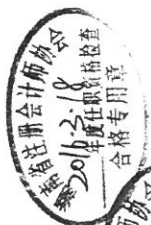 南省注册会计师协会
2016.3.18
年度任职资格检查
合格专用章
师协会